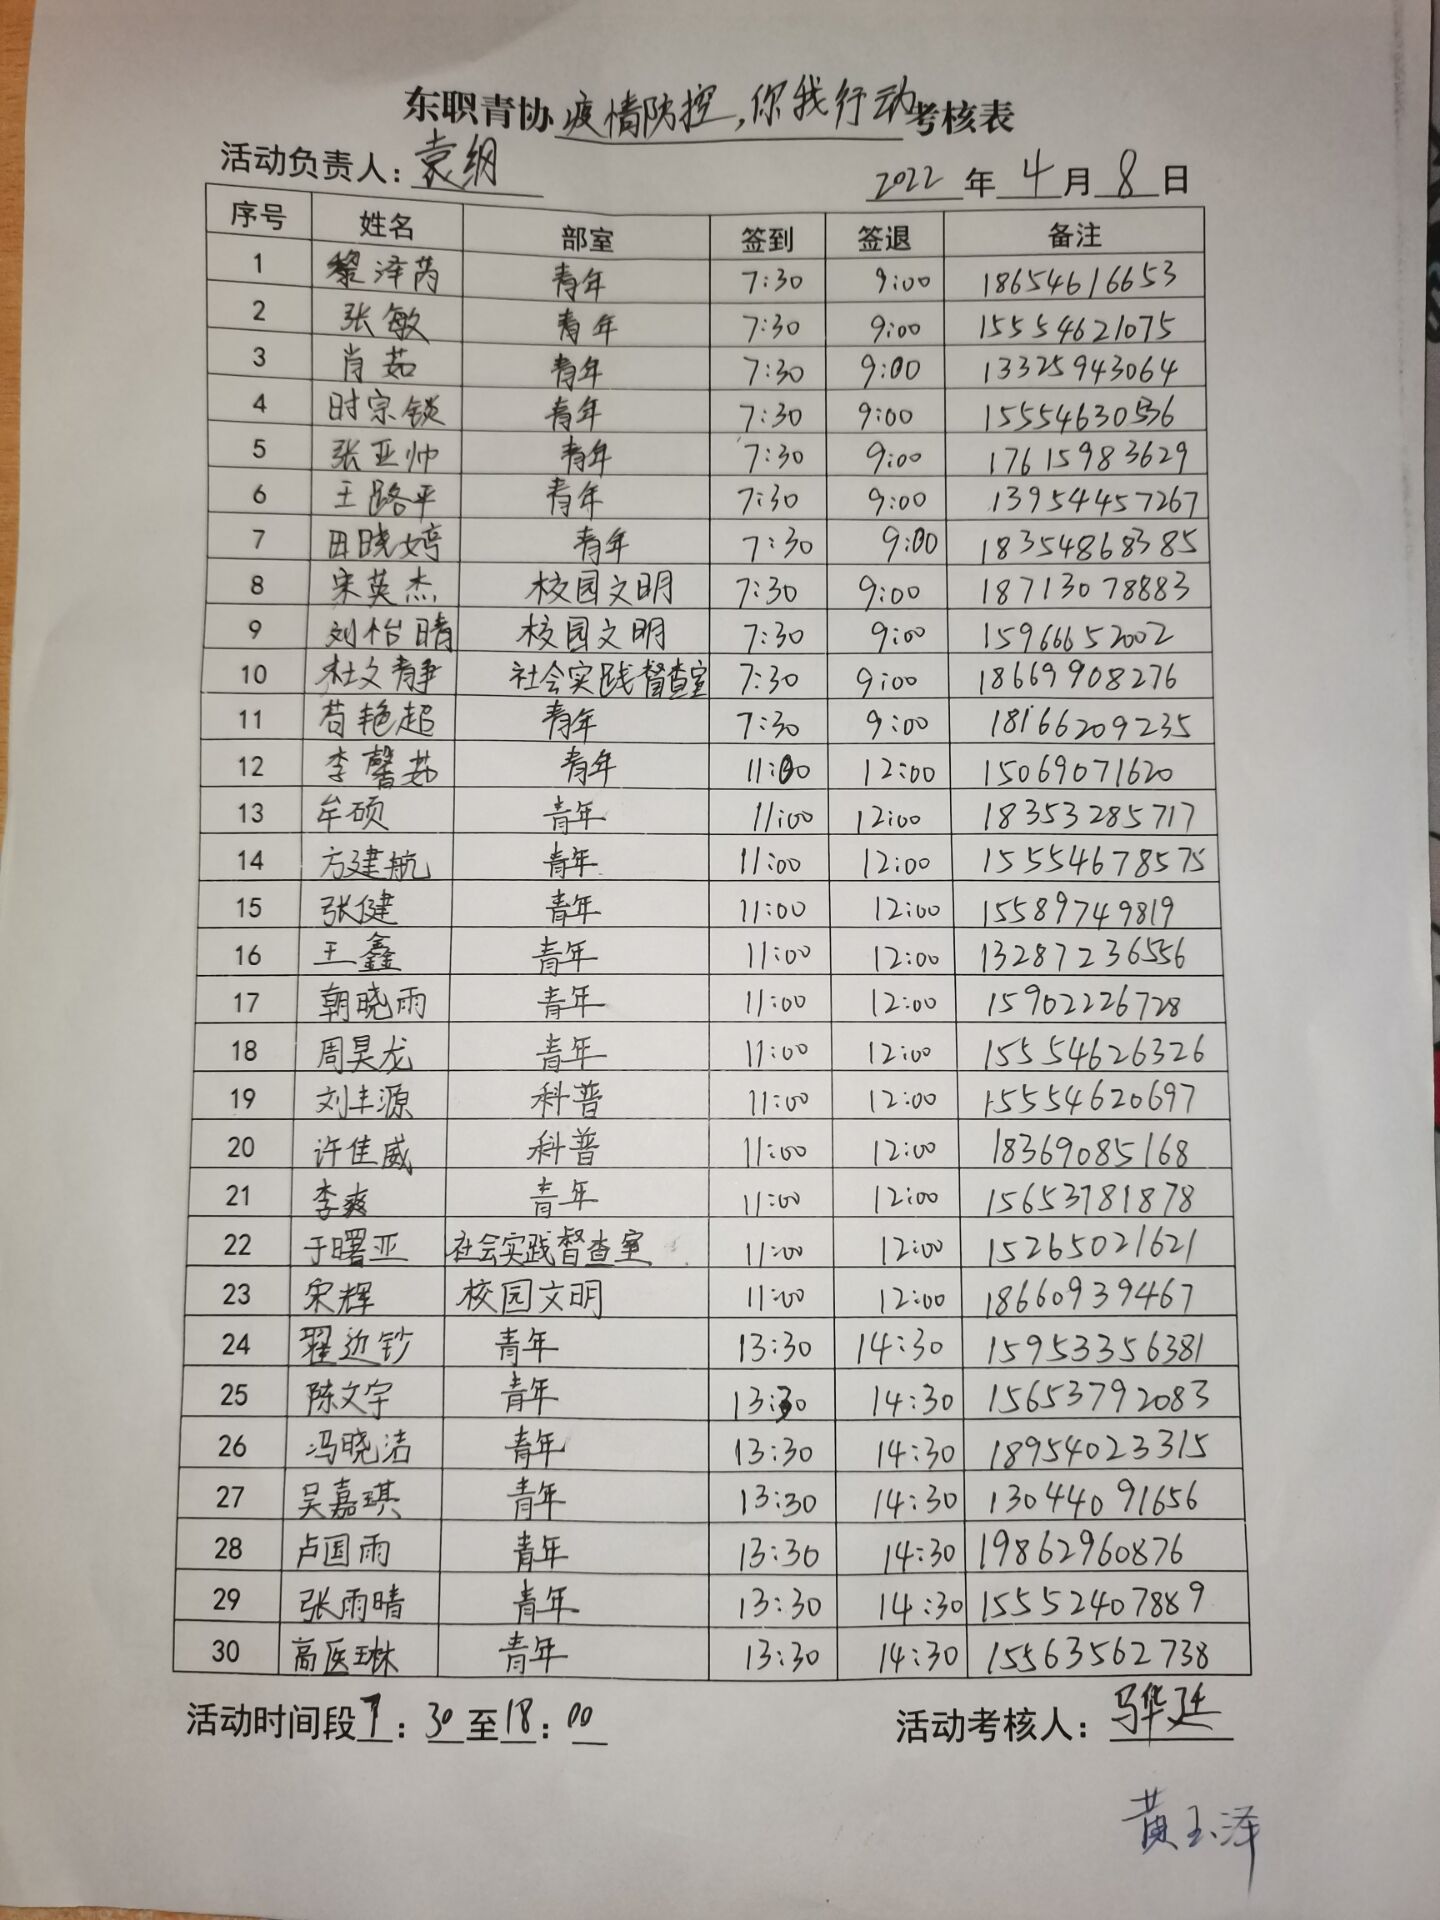 东职青协疫情防控，你我行动考核表
活动负责人：袁纲 2022年4月8日
序号 姓名 部室 签到 签退 备注
1 黎泽芮 青年 7:30 9:00 18654616653
2 张敏 青年 7:30 9:00 15554621075
3 肖茹 青年 7:30 9:00 13325943064
4 时宗锁 青年 7:30 9:00 15554630536
5 张亚帅 青年 7:30 9:00 17615983629
6 王路平 青年 7:30 9:00 13954457267
7 田晓婷 青年 7:30 9:00 18354868385
8 宋英杰 校园文明 7:30 9:00 18713078883
9 刘怡晴 校园文明 7:30 9:00 15966652002
10 杜文静 社会实践督查室 7:30 9:00 18669908276
11 苟艳超 青年 7:30 9:00 18166209235
12 李馨茹 青年 11:00 12:00 15069071620
13 牟硕 青年 11:00 12:00 18353285717
14 方建航 青年 11:00 12:00 155554678575
15 张健 青年 11:00 12:00 15589749819
16 王鑫 青年 11:00 12:00 13287236556
17 朝晓雨 青年 11:00 12:00 15902226728
18 周昊龙 青年 11:00 12:00 15554626326
19 刘丰源 科普 11:00 12:00 15554620697
20 许佳威 科普 11:00 12:00 18369085168
21 李爽 青年 11:00 12:00 15653781878
22 于曙亚 社会实践督查室 11:00 12:00 15265021621
23 宋辉 校园文明 11:00 12:00 18660939467
24 翟边钞 青年 13:30 14:30 15953356381
25 陈文宇 青年 13:30 14:30 15653792083
26 冯晓洁 青年 13:30 14:30 18954023315
27 吴嘉琪 青年 13:30 14:30 13044091656
28 卢国雨 青年 13:30 14:30 19862960876
29 张雨晴 青年 13:30 14:30 15552407889
30 高医琳 青年 13:30 14:30 15563562738
活动时间段7：30至18：00 活动考核人：马华廷
黄玉泽